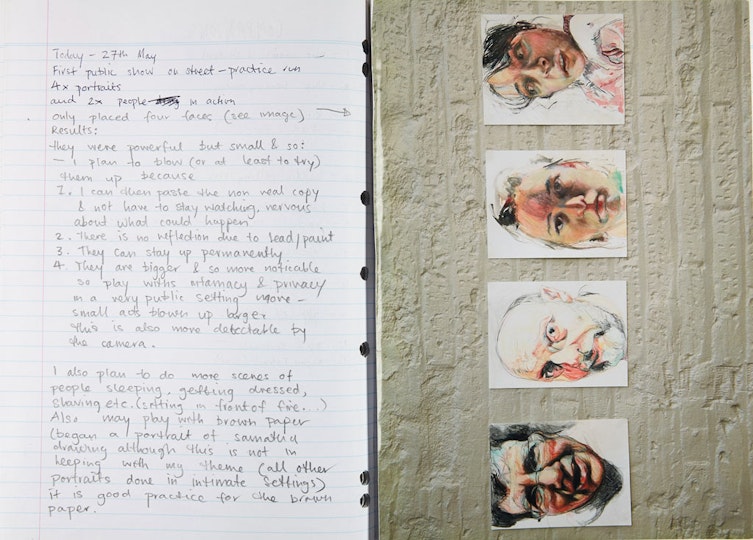 Today - 27th May
First public show on street - practice run
4x portraits
and 2x people in action
only placed four faces (see image)
Results:
they were powerful but small & so:
- I plan to blow (or at least to try)
them up because
1. I can then paste the non real copy
& not have to stay watching, nervous
about what could happen
2. There is no reflection due to lead/paint
3. They can stay up permanently
4. They are bigger & so more noticable
so play with intamacy & privacy
in a very public setting more -
small ads blown up larger
this is also more detectable by
the camera.
I also plan to do more scenes of
people sleeping, getting dressed,
shaving etc. (sitting in front of fire...)
Also may play with brown paper
(began a portrait of
drawing although this is not in
keeping with my theme (all other
portraits done in intimate settings)
it is good practice for the brown
paper.